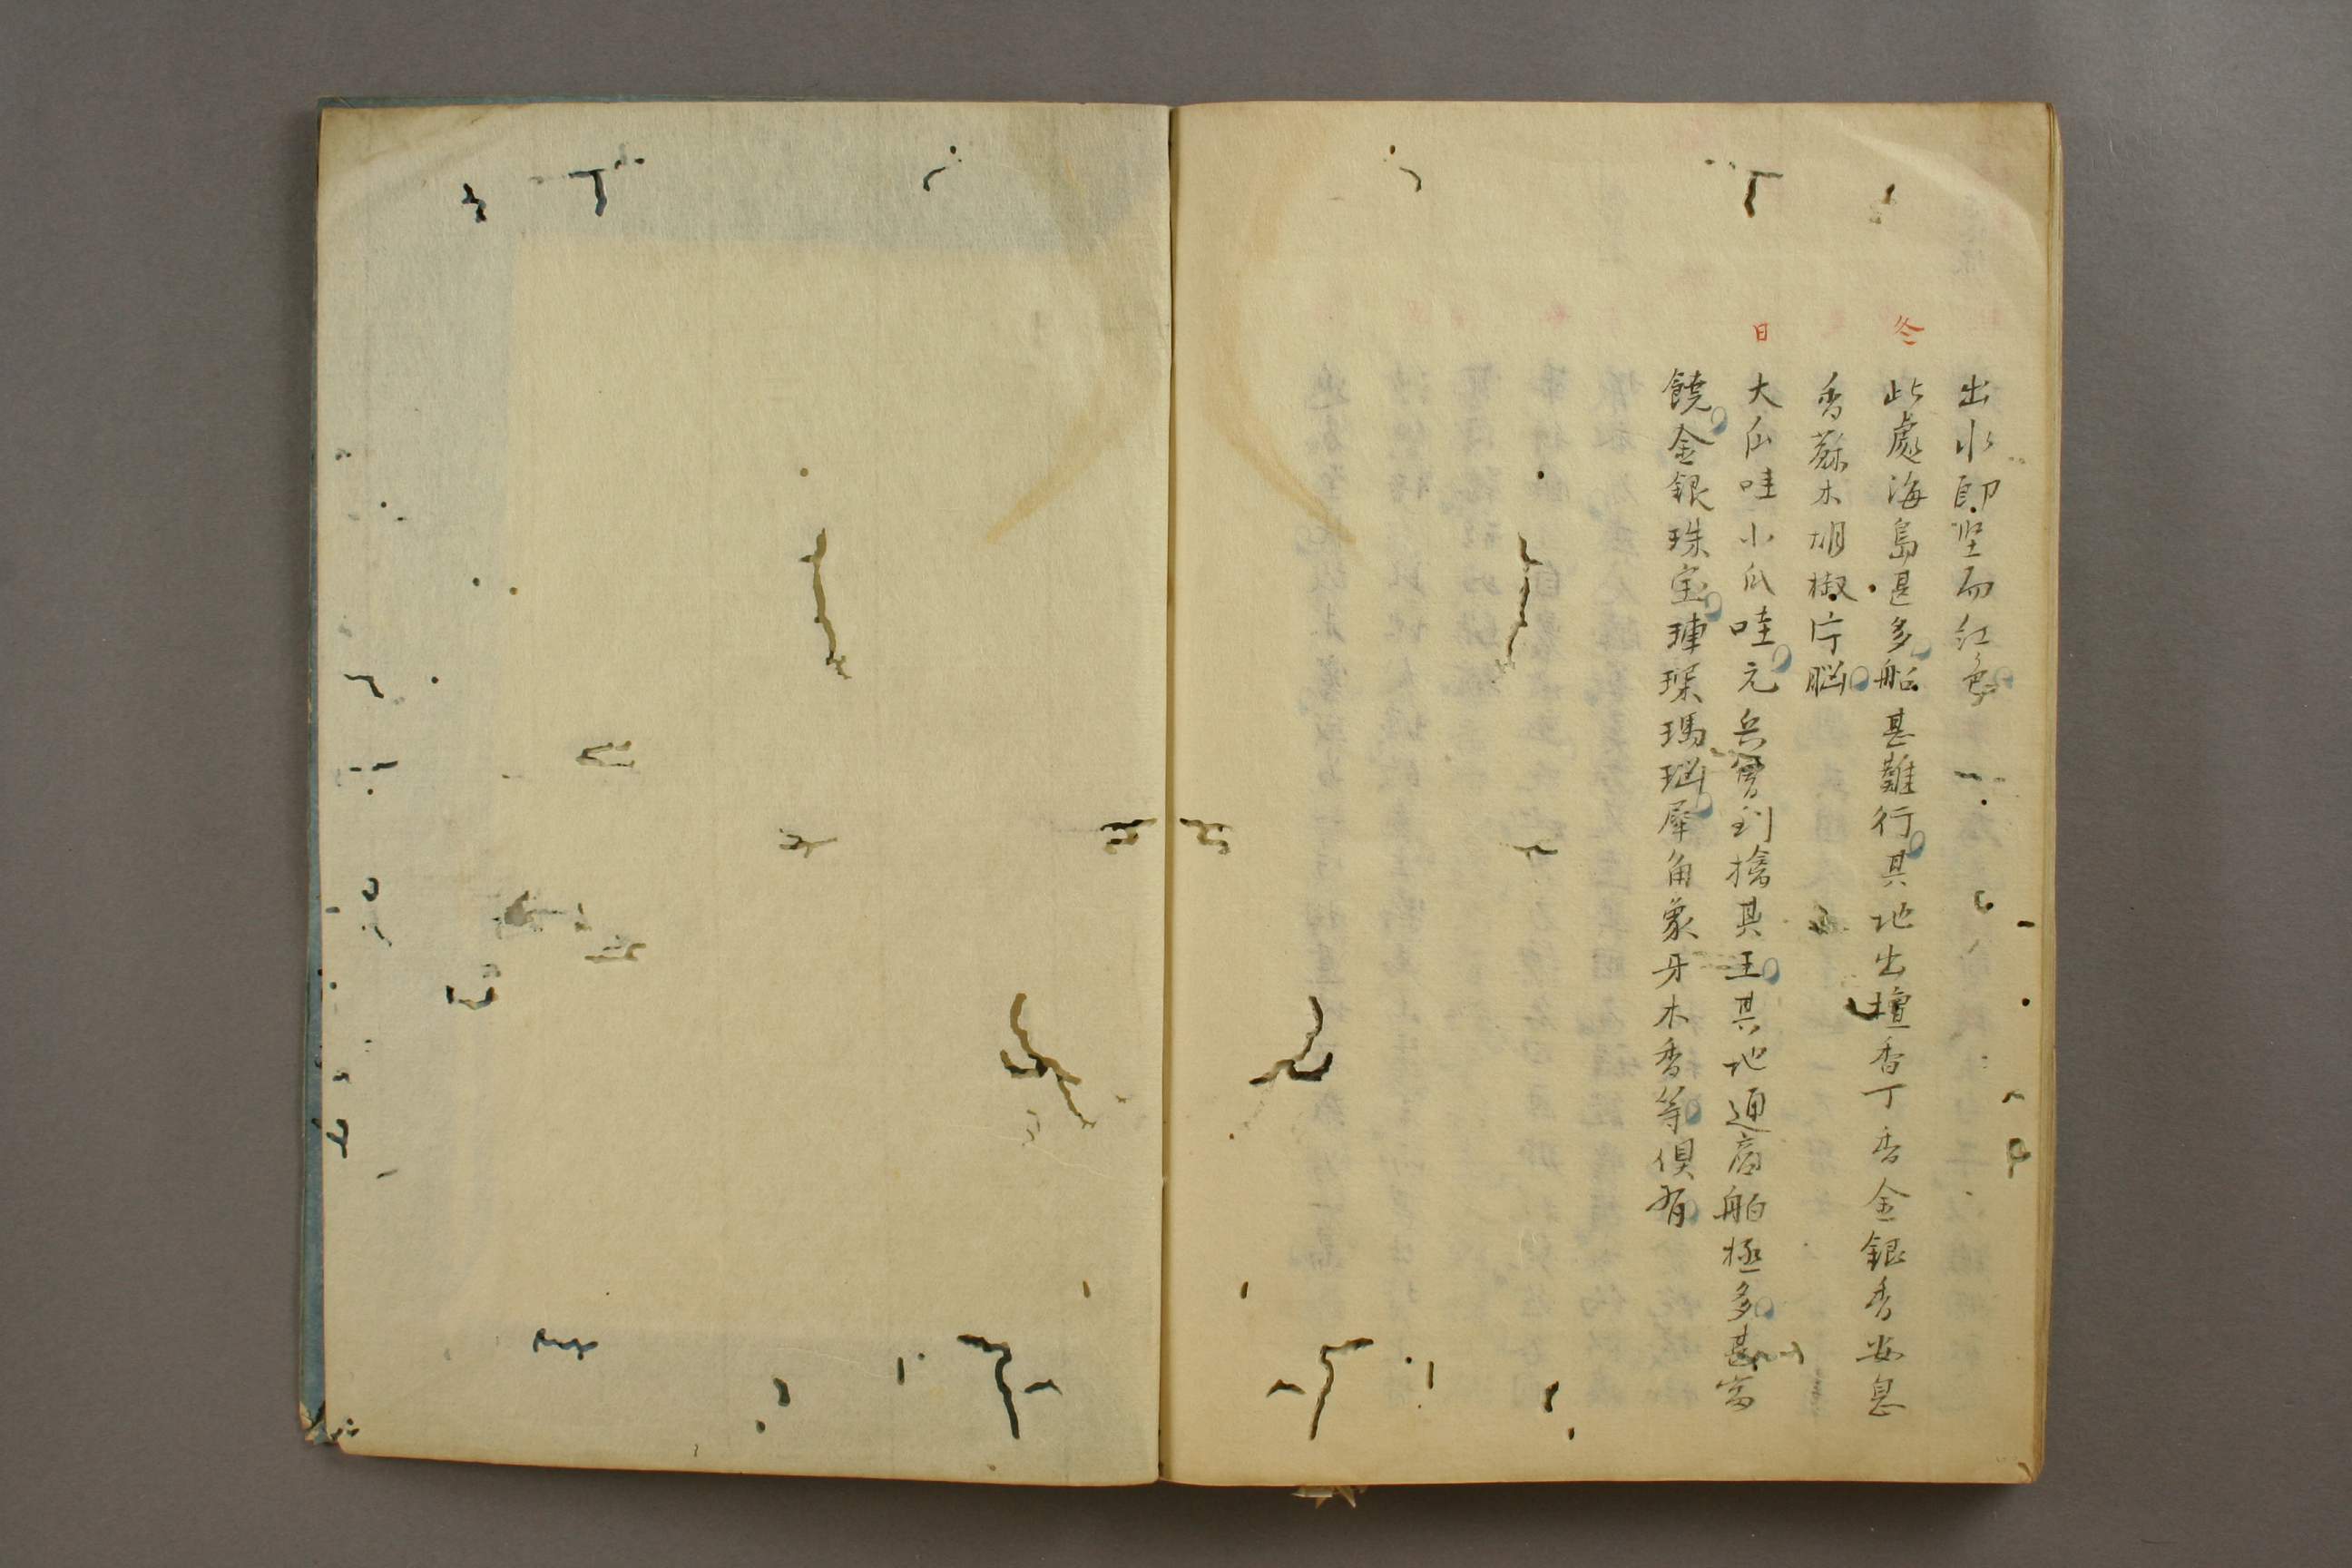 出水即坚而紅色
冬
此處海島甚多船甚難行其地出檀香丁香金銀香安息
香蘇木胡椒片脳
日
大瓜哇小瓜哇元兵曾到擒其王其地通商舶極多甚富
饒金銀珠宝琿琛瑪瑙犀角象牙木香等俱有